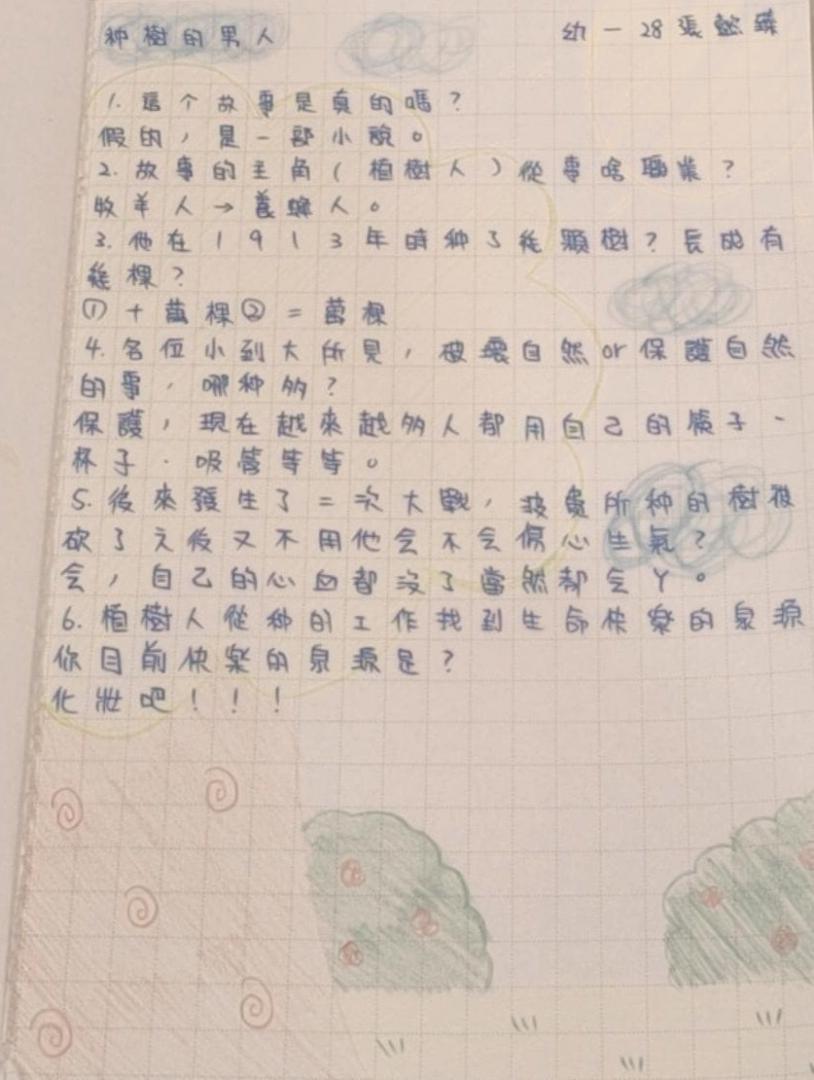 种樹的男人 幼一28張懿臻
1. 這个故事是真的嗎?
假的,是一部小說。
2. 故事的主角(植樹人)從事啥職業?
牧羊人→養蜂人。
3. 他在1913年時种了幾顆樹?長成有
幾棵?
①十萬棵②二萬棵
4. 各位小到大所見,破壞自然or保護自然
的事,哪种多?
保護,現在越來越多人都用自己的筷子、
杯子、吸管等等。
5. 後來發生了二次大戰,浪費所种的樹被
砍了之後又不用他会不会傷心生氣?
会,自己的心血都沒了當然都会丫。
6. 植樹人從种的工作找到生命快樂的泉源
你目前快樂的泉源是?
化妝吧!!!